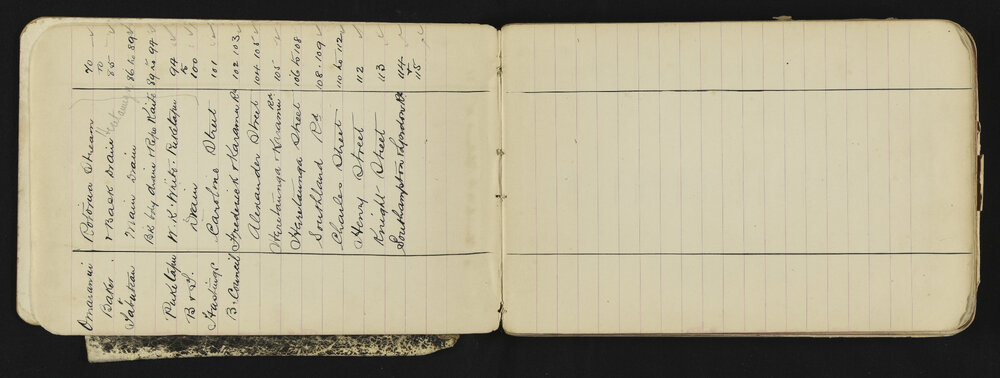 Omaranui Rotorua Stream 70
Baker & Back Drain to 85
& Main Drain 86 to 89
Bk bdy drain & Repo Raite 89 to 94
Puketapu N. R. Puketapu 94 to
B & S. Drain 100
Hastings Caroline Street 101
B. Council Frederick & Karamu Rd 102 103
Alexander Street 104 105
Heretaunga & Karamu Rd 105
Heretaunga Street 106 to 108
Southland Rd 108. 109
Charles Street 110 to 112
Henry Street 112
Knight Street 113
Southampton & Gordon Rd 114 & 115